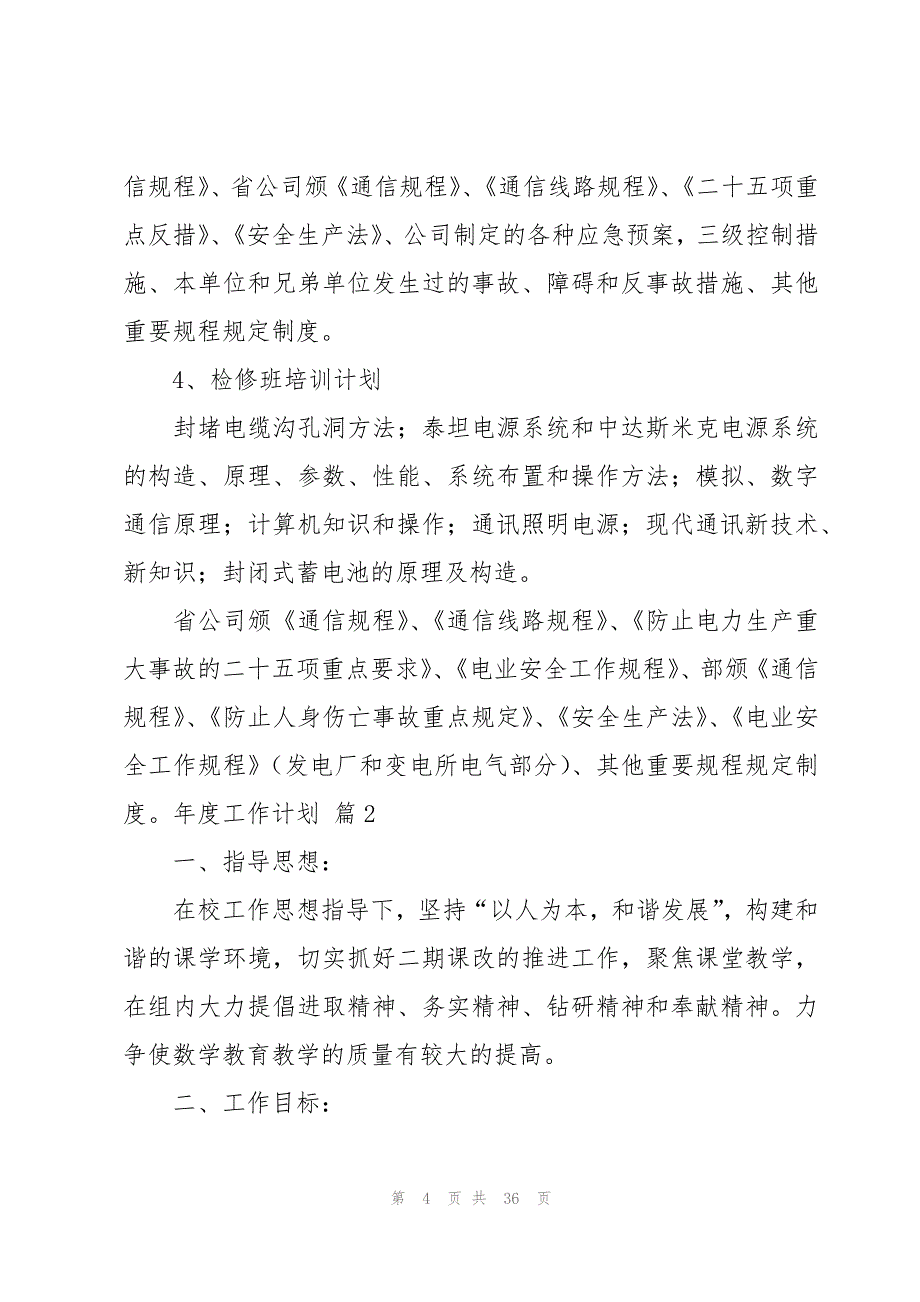 信规程》、省公司颁《通信规程》、《通信线路规程》、《二十五项重
点反措》、《安全生产法》、公司制定的各种应急预案，三级控制措
施、本单位和兄弟单位发生过的事故、障碍和反事故措施、其他
重要规程规定制度。
4、检修班培训计划
封堵电缆沟孔洞方法；泰坦电源系统和中达斯米克电源系统
的构造、原理、参数、性能、系统布置和操作方法；模拟、数字
通信原理；计算机知识和操作；通讯照明电源；现代通讯新技术、
新知识；封闭式蓄电池的原理及构造。
省公司颁《通信规程》、《通信线路规程》、《防止电力生产重
大事故的二十五项重点要求》、《电业安全工作规程》、部颁《通信
规程》、《防止人身伤亡事故重点规定》、《安全生产法》、《电业安
全工作规程》（发电厂和变电所电气部分）、其他重要规程规定制
度。年度工作计划 篇2
一、指导思想：
在校工作思想指导下，坚持“以人为本，和谐发展”，构建和
谐的课学环境，切实抓好二期课改的推进工作，聚焦课堂教学，
在组内大力提倡进取精神、务实精神、钻研精神和奉献精神。力
争使数学教育教学的质量有较大的提高。
二、工作目标：
第 4 页 共 36 页